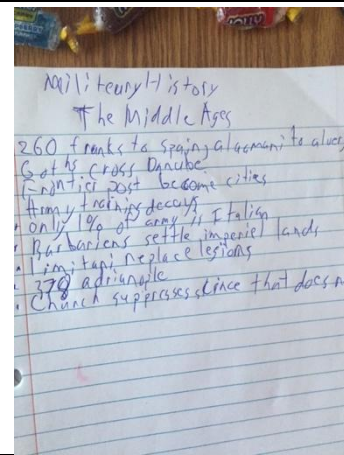 Military History
The Middle Ages
260 franks to Spain, alaamani to alver
Goths cross Danube
Frontier post become cities
Army training decays
• only 1% of army is Italian
• Barbariens settle imperiel lands
• limitani neplace legions
• 378 adrianople
• Church suppresses since that does n
JOLLY